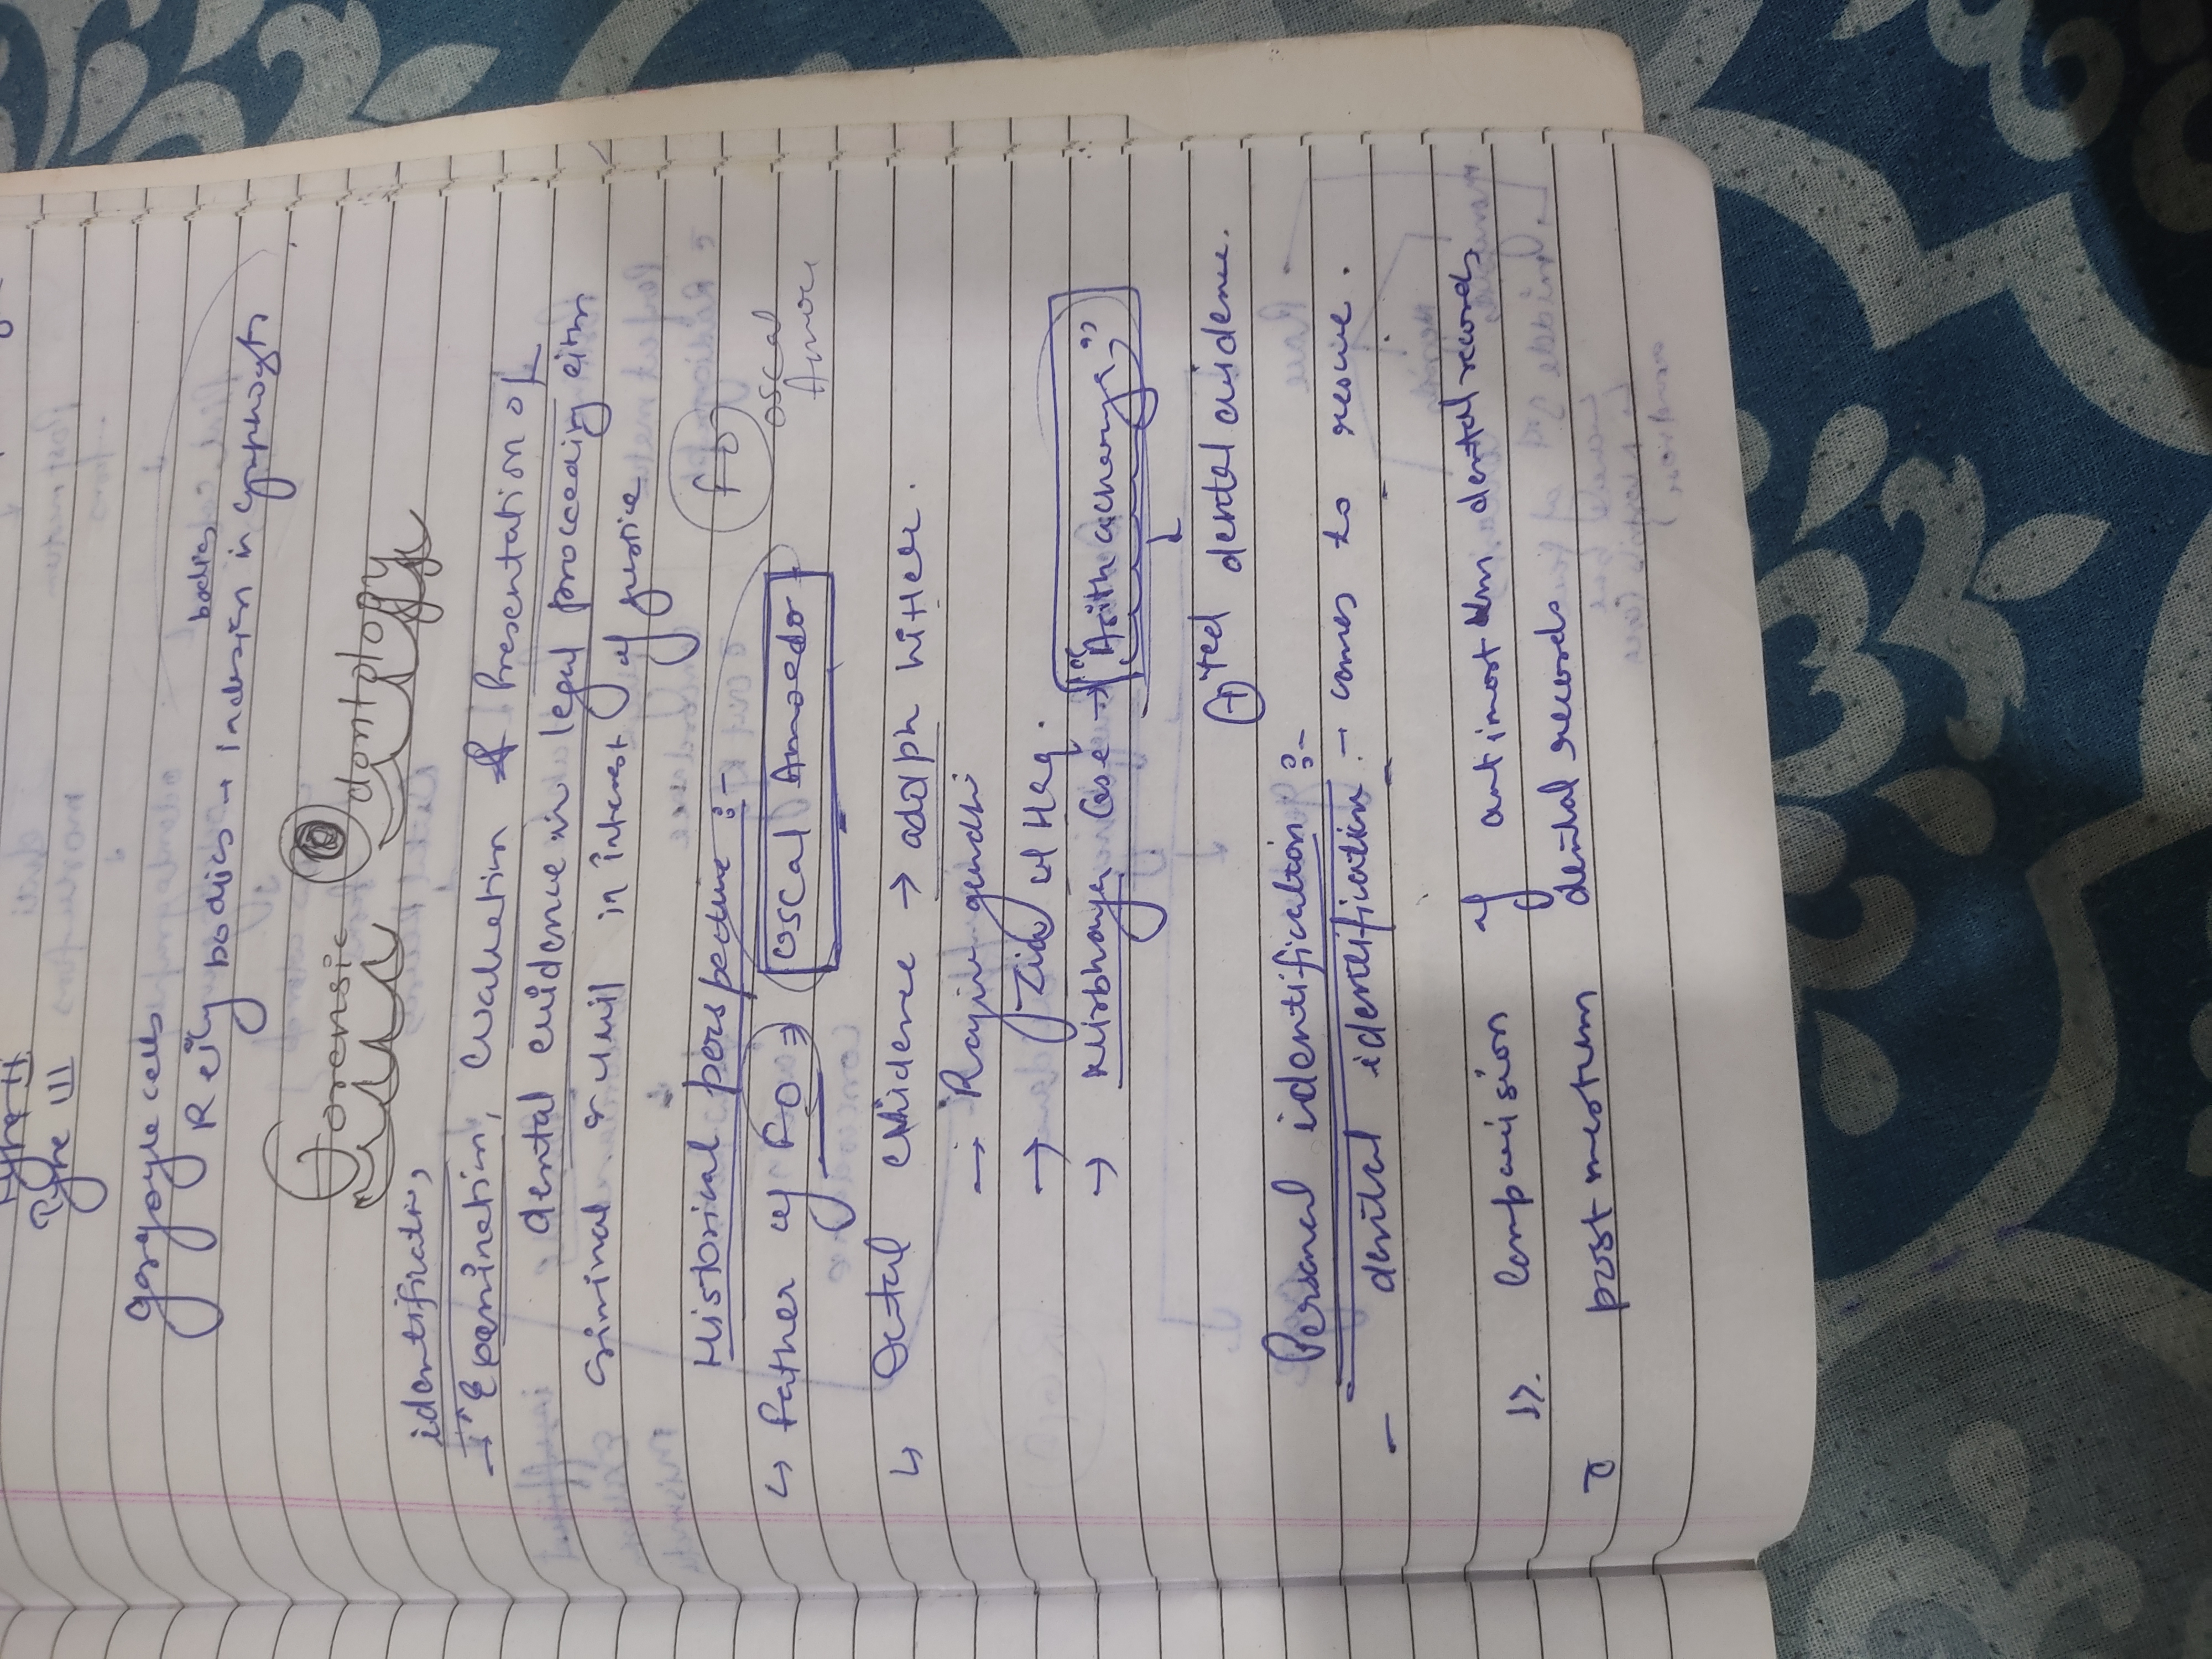 Type II
Type III
gargoyle cells
Reily bodies → inclusion bodies in lymphocyts
Forensic Odontology
identificatin,
→ "Examination, Evaluation & Presentation of
dental evidence in legal proceeding either
criminal or civil in interest of justice
Historical perspective :-
↳ Father of FO ⇒ Oscal Amoedo
FO
oscal
Amoe
↳ Dental evidence → adolph hitler.
→ Rajiv gandhi
→ Zia ul Haq.
→ Nirbhaya Case → "Asith acharya"
↓
⊕ted dental evidence.
Personal identification :-
- dental identification → comes to rescue.
1). Comparision of antimortem dental records
c̄ post mortum dental records